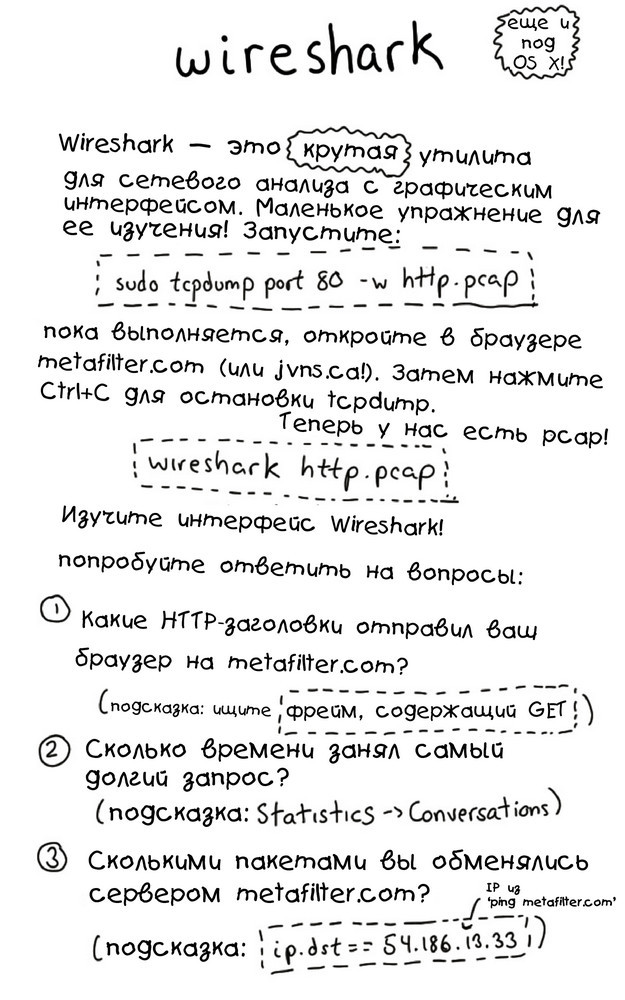 wireshark
еще и
под
OS X!
Wireshark — это крутая утилита
для сетевого анализа с графическим
интерфейсом. Маленькое упражнение для
ее изучения! Запустите:
sudo tcpdump port 80 -w http.pcap
пока выполняется, откройте в браузере
metafilter.com (или jvns.ca!). Затем нажмите
Ctrl+C для остановки tcpdump.
Теперь у нас есть pcap!
wireshark http.pcap
Изучите интерфейс Wireshark!
попробуйте ответить на вопросы:
1 Какие HTTP-заголовки отправил ваш
браузер на metafilter.com?
(подсказка: ищите фрейм, содержащий GET!)
2 Сколько времени занял самый
долгий запрос?
(подсказка: Statistics -> Conversations)
3 Сколькими пакетами вы обменялись
сервером metafilter.com?
IP из
'ping metafilter.com'
(подсказка: ip.dst == 54.186.13.33)